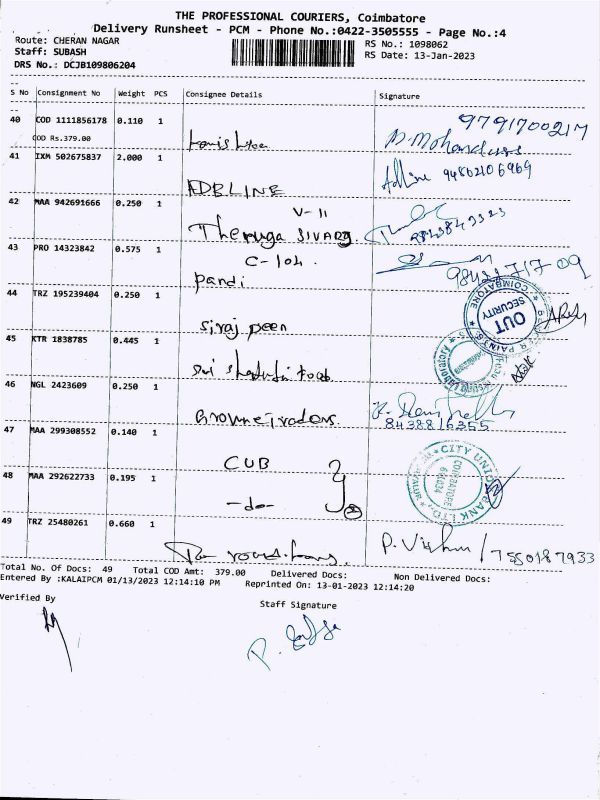 THE PROFESSIONAL COURIERS, Coimbatore
Delivery Runsheet - PCM - Phone No.:0422-3505555 - Page No.:4
Route: CHERAN NAGAR
Staff: SUBASH
DRS No.: DCJB109806204
RS No.: 1098062
RS Date: 13-Jan-2023
S No Consignment No Weight PCS Consignee Details Signature
40 COD 1111856178 0.110 1
COD Rs.379.00
9791700217
41 IXM 502675837 2.000 1
ADELINE
Adline 94862106969
42 MAA 942691666 0.250 1
V-11
43 PRO 14323842 0.575 1
C-104.
Pandi
44 TRZ 195239404 0.250 1
COIMBATORE
OUT
SECURITY
Siraj Deen
45 KTR 1838785 0.445 1
46 NGL 2423609 0.250 1
8438816355
47 MAA 299308552 0.140 1
CUB
CITY UNION BANK LTD.,
COIMBATORE
641034
48 MAA 292622733 0.195 1
-do-
49 TRZ 25480261 0.660 1
P. Vishnu / 7550187933
Total No. Of Docs: 49 Total COD Amt: 379.00 Delivered Docs: Non Delivered Docs:
Entered By :KALAIPCM 01/13/2023 12:14:10 PM Reprinted On: 13-01-2023 12:14:20
Verified By
Staff Signature